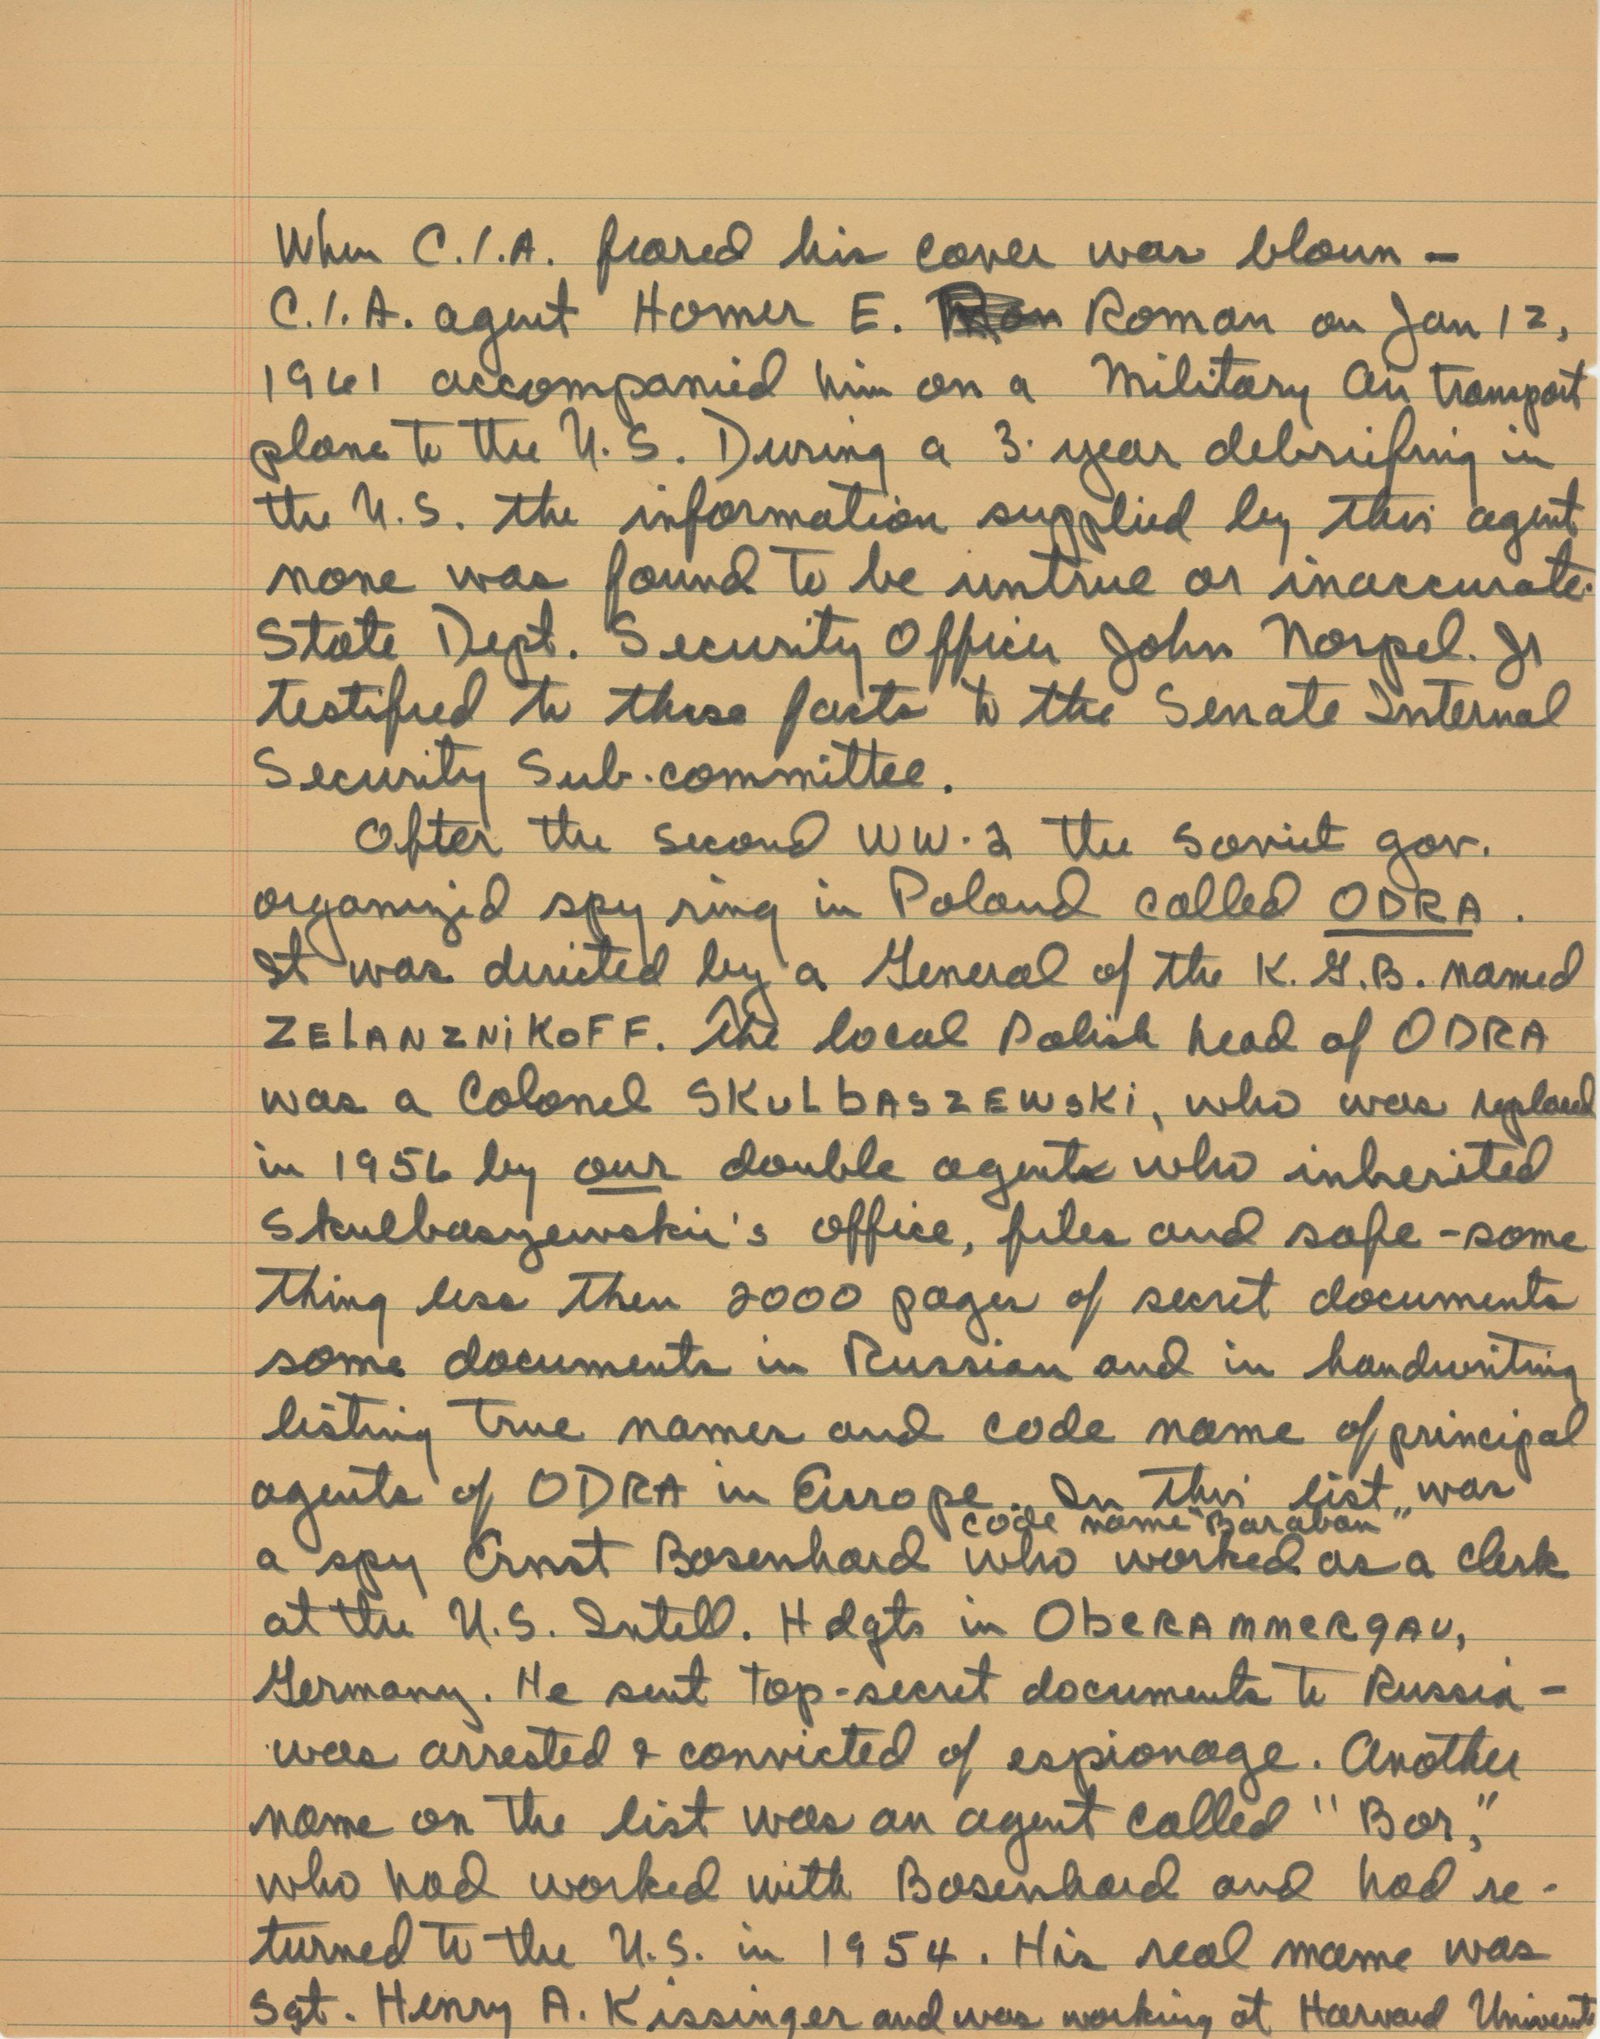 When C.I.A. feared his cover was bloun –
C.I.A. agent Homer E. Roman on Jan 12,
1961 accompanied him on a Military Air transport
plane to the U.S. During a 3-year debriefing in
the U.S. the information supplied by this agent
none was found to be untrue or inaccurate.
State Dept. Security Officer John Norpel. Jr
testified to these facts to the Senate Internal
Security Sub-committee.
After the second WW-2 the Soviet gov.
organized spy ring in Poland called ODRA.
It was directed by a General of the K.G.B. named
ZELANZNIKOFF. The local Polish head of ODRA
was a Colonel SKULbASZEWSKi, who was replaced
in 1956 by our double agent who inherited
Skulbaszewskii's office, files and safe - some
thing less then 2000 pages of secret documents
some documents in Russian and in handwriting
listing true names and code name of principal
agents of ODRA in Europe. In this list was
code name "Baraban"
a spy Ernst Bosenhard who worked as a clerk
at the U.S. Intell. Hdqts in ObeRAMMeRgAU,
Germany. He sent top-secret documents to Russia –
was arrested & convicted of espionage. Another
name on the list was an agent called "Bor,"
who had worked with Bosenhard and had re-
turned to the U.S. in 1954. His real name was
Sgt. Henry A. Kissinger and was working at Harvard